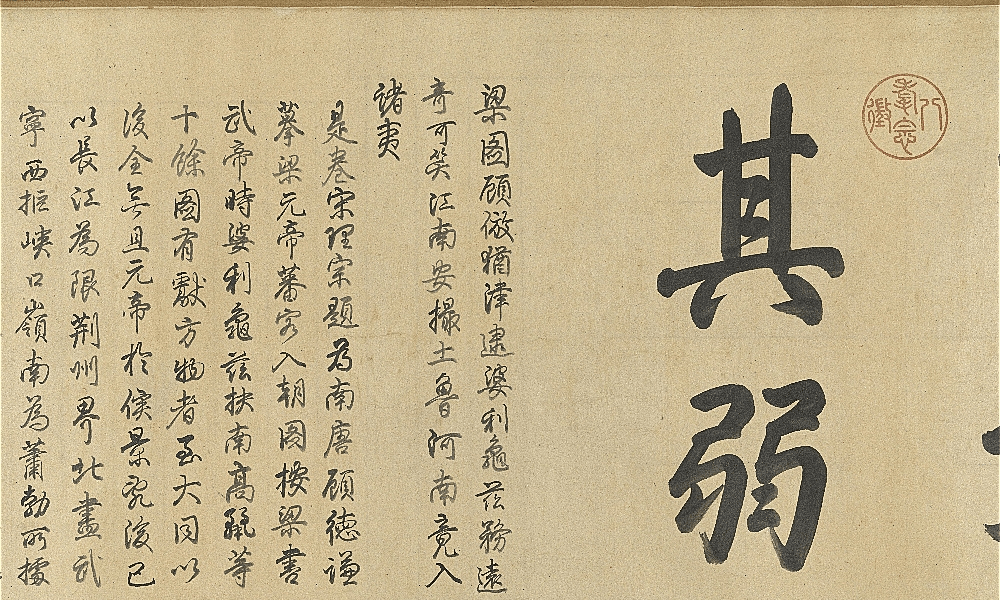 八徵耄念
其弱
梁圖顧倣猶津逮婆利龜茲務遠
奇可笑江南安撮土魯河南竟入
諸夷
是卷宋理宗題為南唐顧德謙
摹梁元帝蕃客入朝圖按梁書
武帝時婆利龜茲扶南高驪等
十餘國有獻方物者至大同以
後全無且元帝於侯景亂後已
以長江為限荊州界北盡武
寧西拒峽口嶺南為蕭勃所據